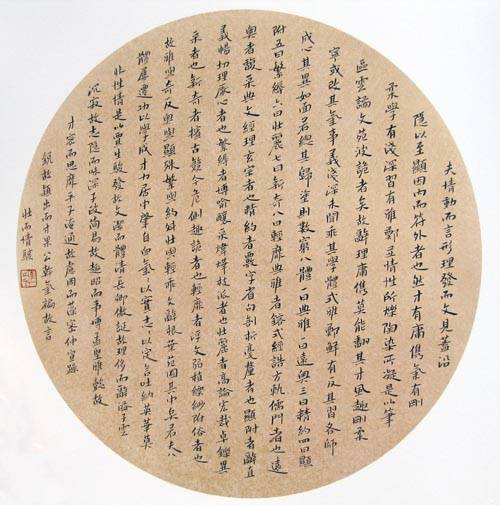 夫情動而言形理發而文見蓋沿
隱以至顯因內而符外者也然才有庸儁氣有剛
柔學有淺深習有雅鄭並情性所爍陶染所凝是以筆
區雲譎文苑波詭者矣故辭理庸儁莫能翻其才風趣剛柔
寧或改其氣事義淺深未聞乖其學體式雅鄭鮮有反其習各師
成心其異如面若總其歸塗則數窮八體一曰典雅二曰遠奧三曰精約四曰顯
附五曰繁縟六曰壯麗七曰新奇八曰輕靡典雅者鎔式經誥方軌儒門者也遠
奧者馥采典文經理玄宗者也精約者覈字省句剖析毫釐者也顯附者辭直
義暢切理厭心者也繁縟者博喻釀采煒燁枝派者也壯麗者高論宏裁卓爍異
采者也新奇者擯古競今危側趣詭者也輕靡者浮文弱植縹緲附俗者也
故雅與奇反奧與顯殊繁與約舛壯與輕乖文辭根葉苑囿其中矣若夫八
體屢遷功以學成才力居中肇自血氣氣以實志志以定言吐納英華莫
非性情是以賈生駿發故文潔而體清長卿傲誕故理侈而辭溢子雲
沉寂故志隱而味深子政簡易故趣昭而事博孟堅雅懿故
才密而思靡平子淹通故慮周而藻密仲宣躁
銳故穎出而才果公幹氣褊故言
壯而情駭